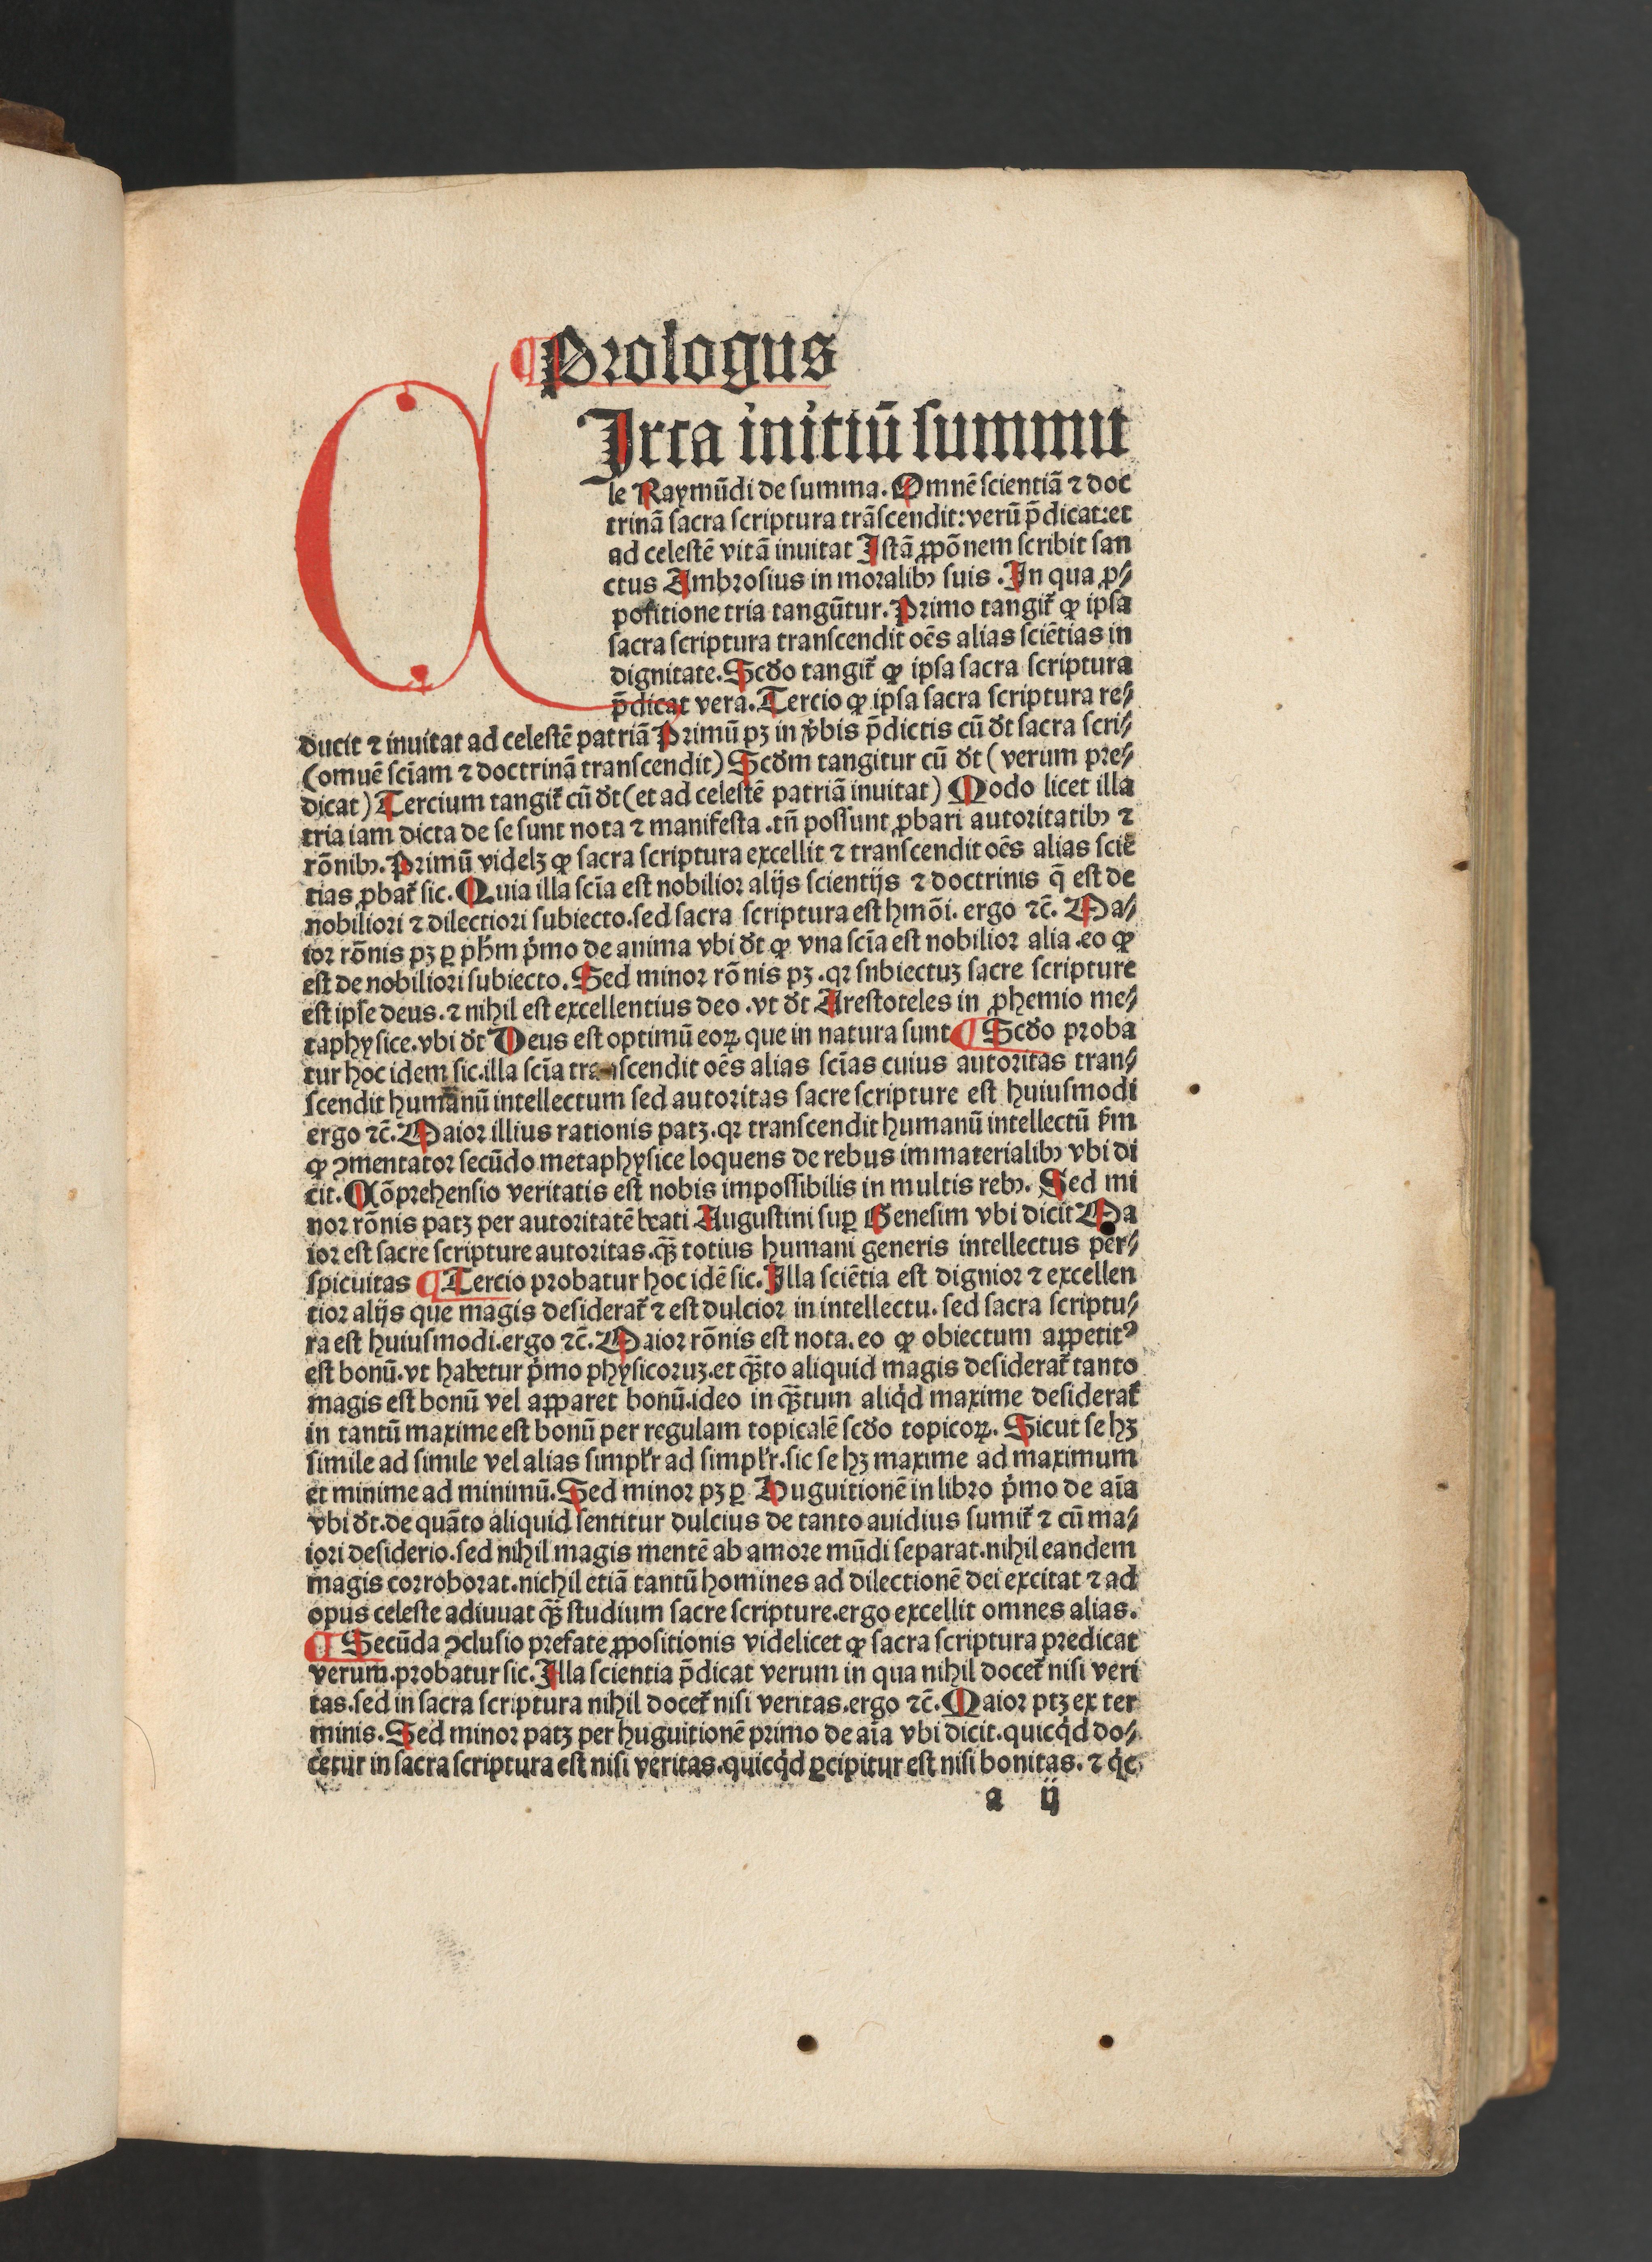 ¶ Prologus
CIrca initiū summu
le Raymūdi de summa. Omnē scientiā ⁊ doc
trinā sacra scriptura trāscendit: verū p̄dicat: et
ad celestē vitā inuitat Istā ꝓpōnem scribit san
ctus Ambrosius in moralibꝫ suis. In qua ꝓ⸗
positione tria tangūtur. Primo tangit̃ ꝙ ipsa
sacra scriptura transcendit oēs alias sciētias in
dignitate. Scd̃o tangit̃ ꝙ ipsa sacra scriptura
p̄dicat vera. Tercio ꝙ ipsa sacra scriptura re⸗
ducit ⁊ inuitat ad celestē patriā Primū pꝫ in v̓bis p̄dictis cū dt̃ sacra scri⸗
(omuē scīam ⁊ doctrinā transcendit) Scd̃m tangitur cū dt̃ (verum pre⸗
dicat) Tercium tangit̃ cū dt̃ (et ad celestē patriā inuitat) Modo licet illa
tria iam dicta de se sunt nota ⁊ manifesta. tñ possunt ꝓbari autoritatibꝫ ⁊
rōnibꝫ. Primū videlꝫ ꝙ sacra scriptura excellit ⁊ transcendit oēs alias sciē
tias ꝓbat̃ sic. Quia illa scīa est nobilior alijs scientijs ⁊ doctrinis q̄ est de
nobiliori ⁊ dilectiori subiecto. sed sacra scriptura est hmōi. ergo ⁊c̄. Ma⸗
ior rōnis pꝫ ꝑ ph̄m p̓mo de anima vbi dt̃ ꝙ vna scīa est nobilior alia. eo ꝙ
est de nobiliori subiecto. Sed minor rōnis pꝫ. qꝛ snbiectuꝫ sacre scripture
est ipse deus. ⁊ nihil est excellentius deo. vt dt̃ Arestoteles in ꝓhemio me⸗
taphysice. vbi dt̃ Deus est optimū eoꝝ que in natura sunt ¶ Scd̃o proba
tur hoc idem sic. illa scīa transcendit oēs alias scīas cuius autoritas tran⸗
scendit humanū intellectum sed autoritas sacre scripture est huiusmodi
ergo ⁊c̄. Maior illius rationis patꝫ. qꝛ transcendit humanū intellectū
ꝙ ꝯmentator secūdo metaphysice loquens de rebus immaterialibꝫ vbi di
cit. Cōprehensio veritatis est nobis impossibilis in multis rebꝫ. Sed mi
nor rōnis patꝫ per autoritatē beati Augustini suꝑ Genesim vbi dicit Ma
ior est sacre scripture autoritas. q̄ꝫ totius humani generis intellectus per⸗
spicuitas ¶ Tercio probatur hoc idē sic. Illa sciētia est dignior ⁊ excellen
tior alijs que magis desiderat̃ ⁊ est dulcior in intellectu. sed sacra scriptu⸗
ra est huiusmodi. ergo ⁊c̄. Maior rōnis est nota. eo ꝙ obiectum appetitꝰ
est bonū. vt habetur p̓mo physicoruꝫ. et q̄ꝫto aliquid magis desiderat̃ tanto
magis est bonū vel apparet bonū. ideo in q̄ꝫtum aliq̓d maxime desiderat̃
in tantū maxime est bonū per regulam topicalē scd̃o topicoꝝ. Sicut se hꝫ
simile ad simile vel alias simpl̓r ad simpl̓r. sic se hꝫ maxime ad maximum
et minime ad minimū. Sed minor pꝫ ꝑ Huguitionē in libro p̓mo de aīa
vbi dt̃. de quāto aliquid sentitur dulcius de tanto auidius sumit̃ ⁊ cū ma⸗
iori desiderio. sed nihil magis mentē ab amore mūdi separat. nihil eandem
magis corroborat. nichil etiā tantū homines ad dilectionē dei excitat ⁊ ad
opus celeste adiuuat q̄ꝫ studium sacre scripture. ergo excellit omnes alias.
¶ Secūda ꝯclusio prefate ꝓpositionis videlicet ꝙ sacra scriptura predicat
verum. probatur sic. Illa scientia p̄dicat verum in qua nihil docet̃ nisi veri
tas. sed in sacra scriptura nihil docet̃ nisi veritas. ergo ⁊c̄. Maior ptꝫ ex ter
minis. Sed minor patꝫ per huguitionē primo de aīa vbi dicit. quicq̓d do⸗
cetur in sacra scriptura est nisi veritas. quicq̓d ꝑcipitur est nisi bonitas. ⁊ q̓c
a ij